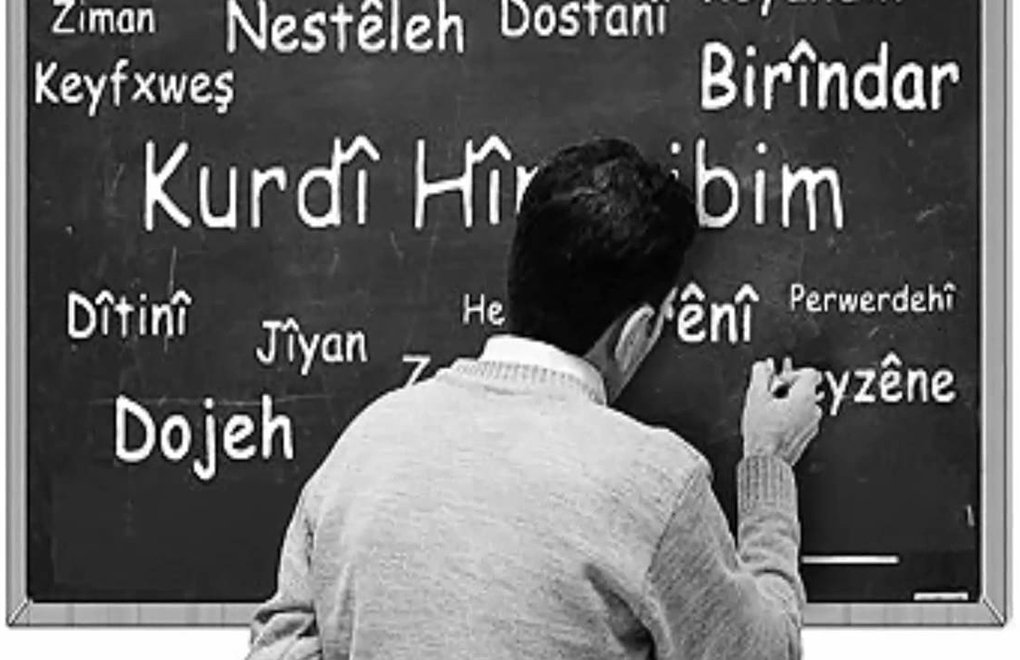 Ziman Nestêleh Dostanî
Keyfxweş Birîndar
Kurdî ibim
Dîtinî Perwerdehî
Jîyan
Dojeh